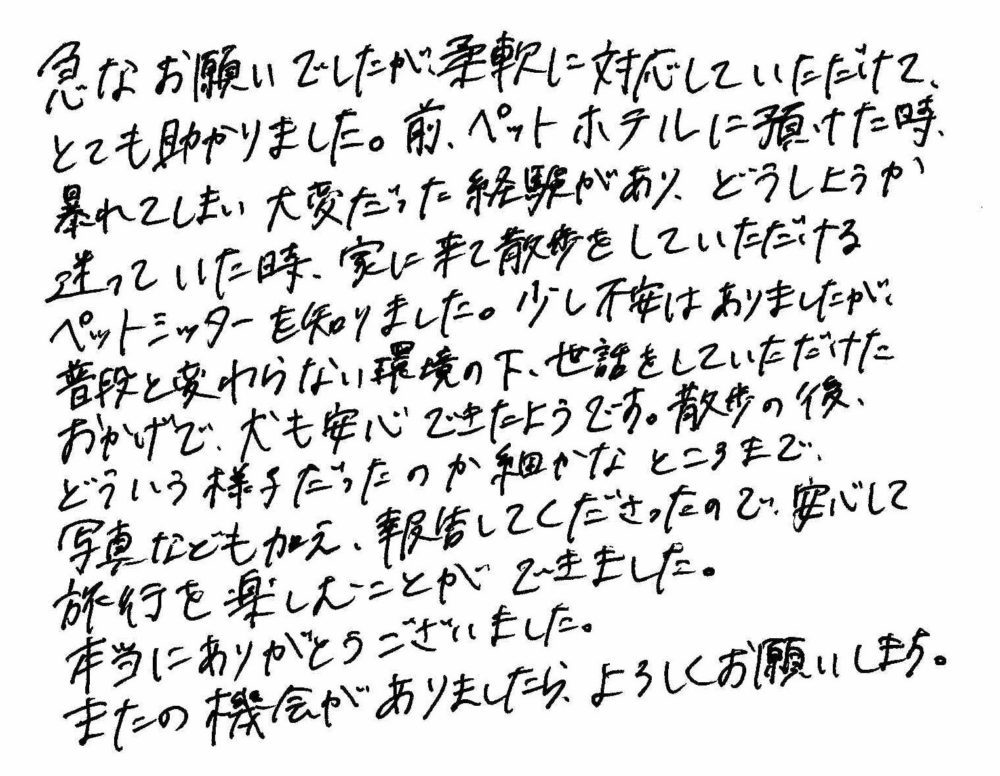 急なお願いでしたが、柔軟に対応していただけて、
とても助かりました。前、ペットホテルに預けた時、
暴れてしまい大変だった経験があり、どうしようか
迷っていた時、家に来て散歩をしていただける
ペットシッターを知りました。少し不安はありましたが、
普段と変わらない環境の下、世話をしていただけた
おかげで、犬も安心できたようです。散歩の後、
どういう様子だったのか細かなところまで、
写真なども加え、報告してくださったので、安心して
旅行を楽しむことができました。
本当にありがとうございました。
またの機会がありましたら、よろしくお願いします。